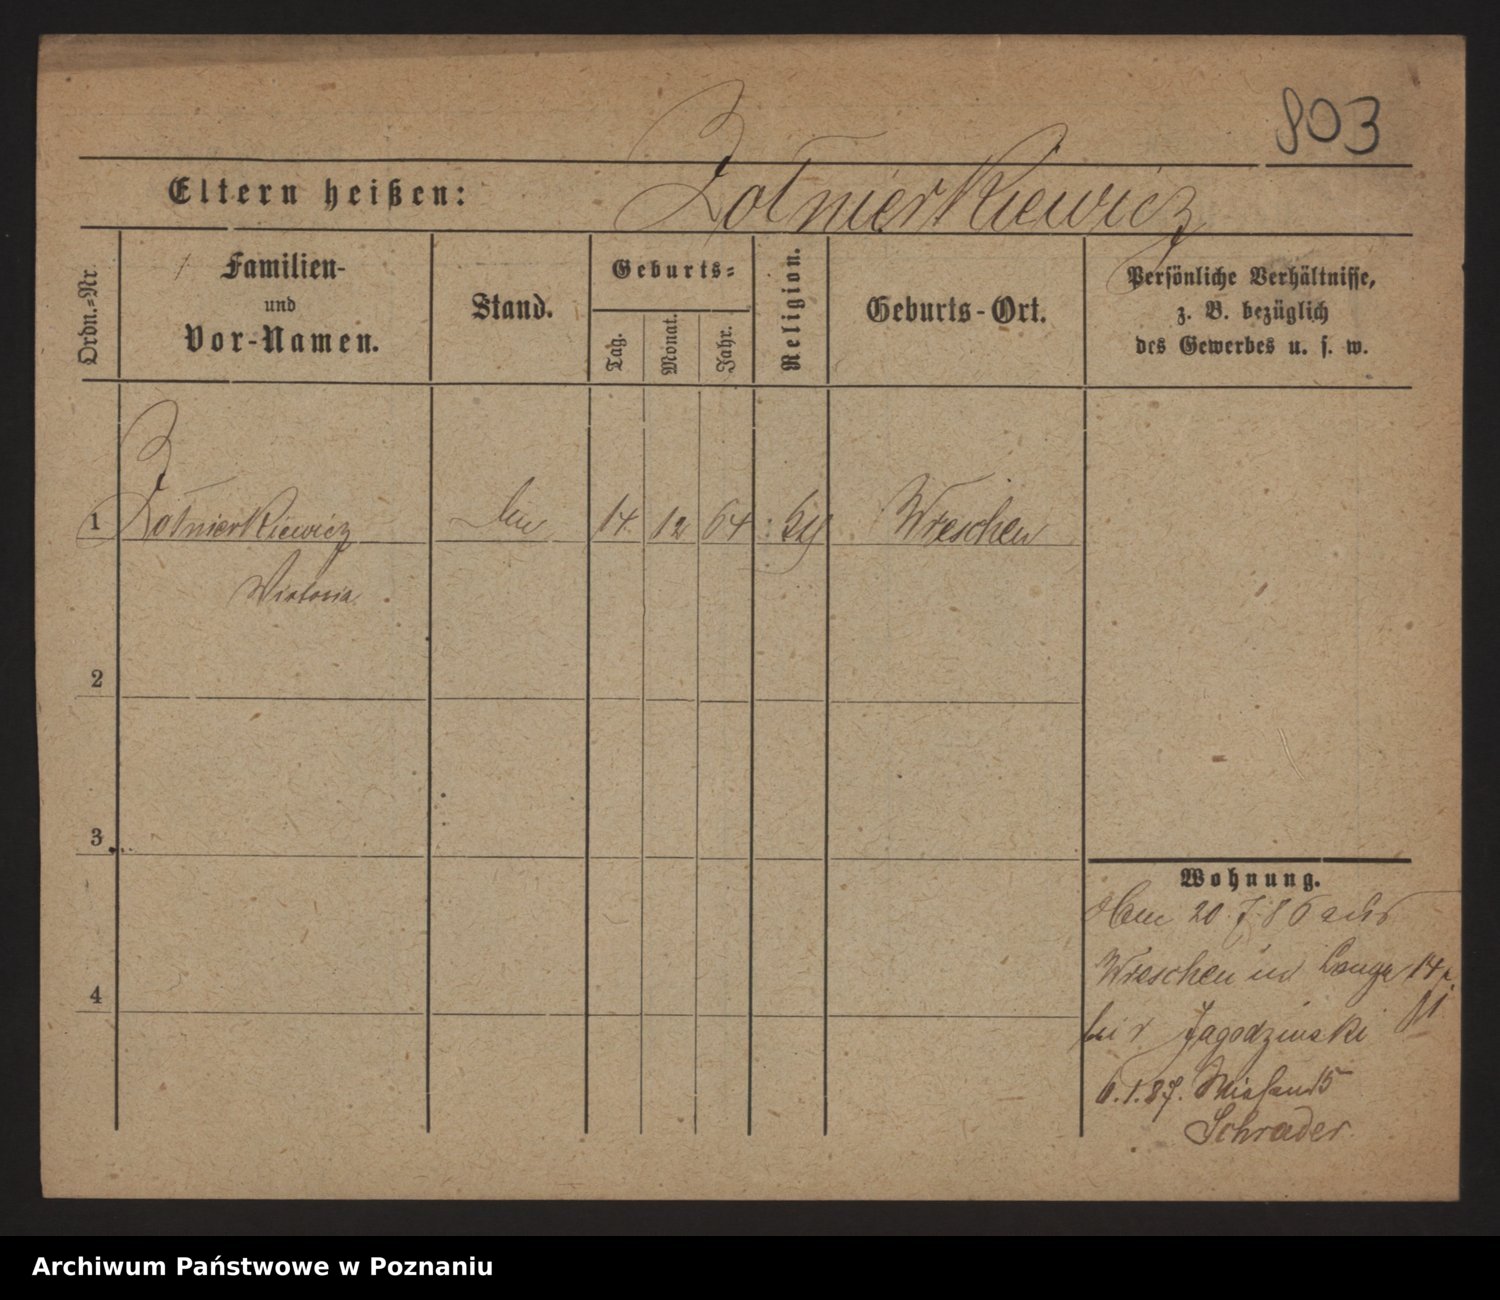 803
Eltern heißen: Zołnierkiewicz
Ordn.-Nr.
Familien-
und
Vor-Namen.
Stand.
Geburts-
Tag.
Monat.
Jahr.
Religion.
Geburts-Ort.
Persönliche Verhältnisse,
z. B. bezüglich
des Gewerbes u. s. w.
1 Zołnierkiewicz 14 12 64 Wreschen
Victoria
2
3
4
Wohnung.
20.7.86 aus
Wreschen in Lange 14
bei Jagodzinski
6.1.87. 15
Schrader
Archiwum Państwowe w Poznaniu